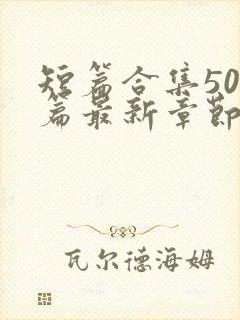 短篇合集50
篇最新章节
瓦尔德海姆